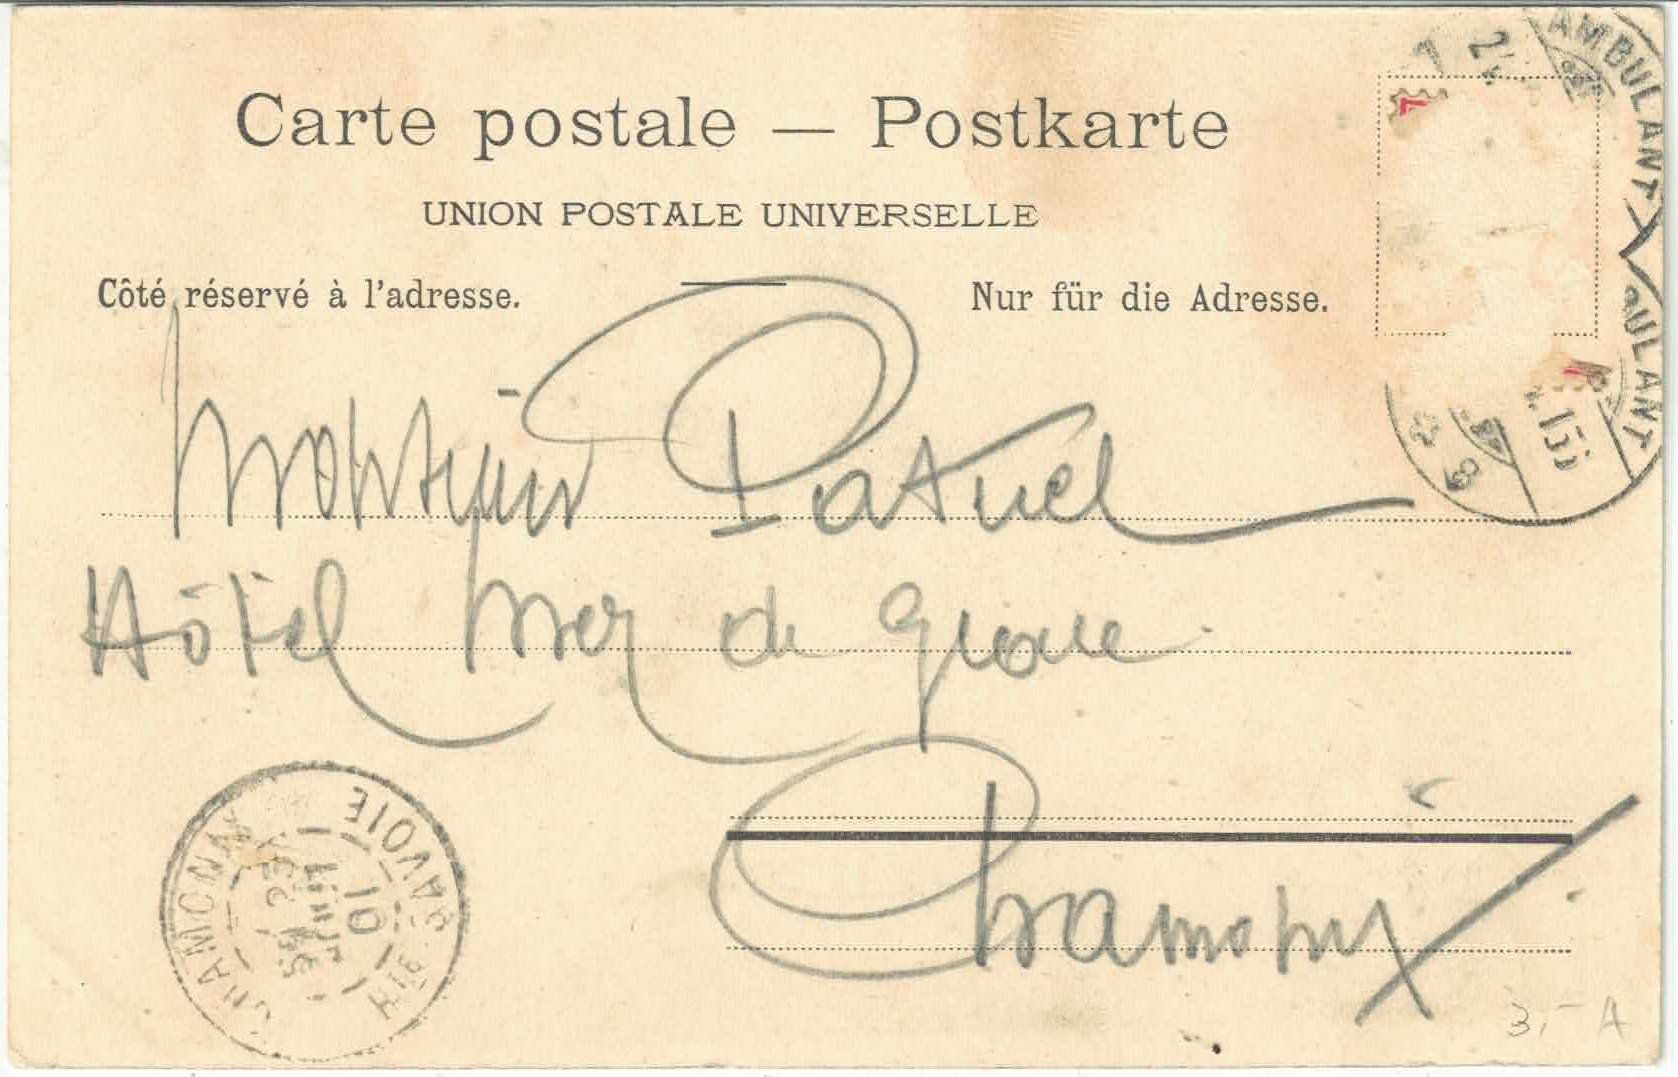 Carte postale — Postkarte
UNION POSTALE UNIVERSELLE
Côté réservé à l'adresse.
Nur für die Adresse.
AMBULANT
BULANT
Monsieur Patuel
Hôtel Mer de Glace
Chamonix
CHAMONIX
HTE SAVOIE
10
JUIL
3,- A